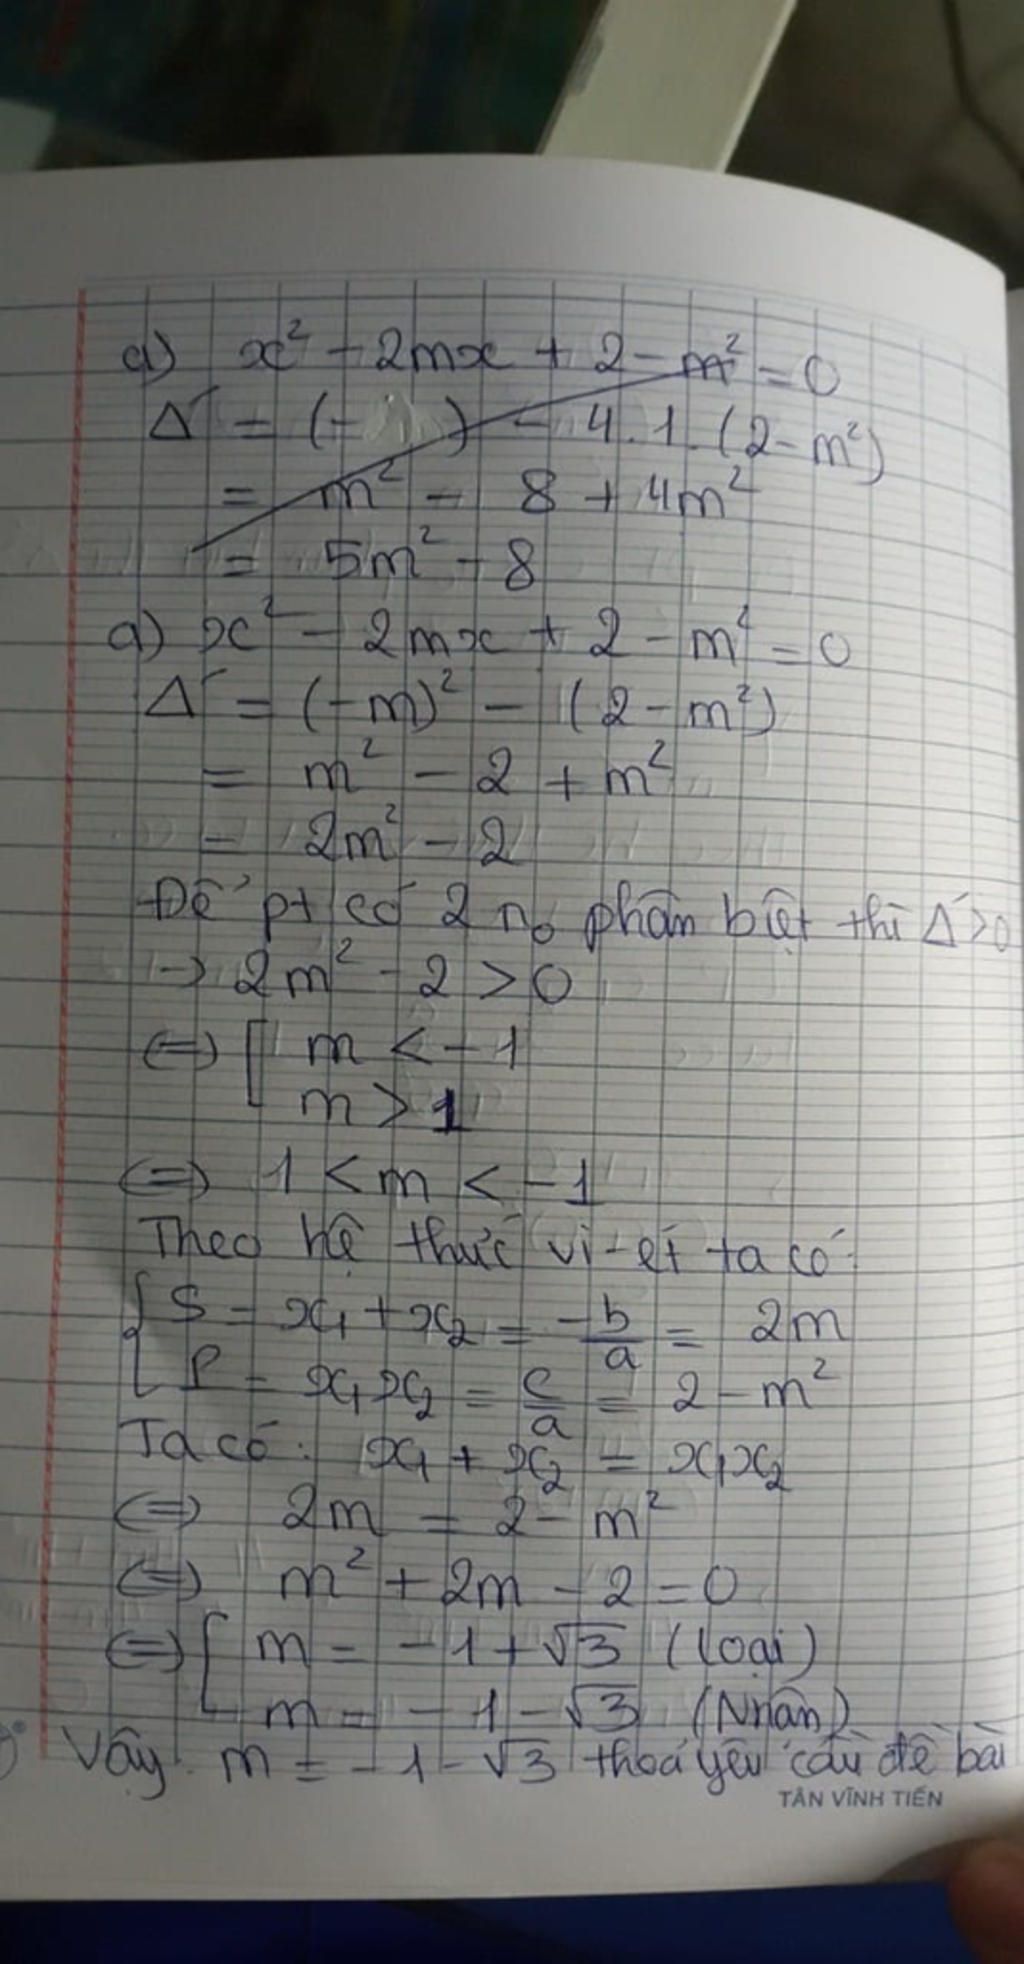 a) x² - 2mx + 2 - m² = 0
Δ' = (-   ) - 4.1.(2 - m²)
= m² - 8 + 4m²
= 5m² - 8
a) x² - 2mx + 2 - m² = 0
Δ' = (-m)² - (2 - m²)
= m² - 2 + m²
= 2m² - 2
Để pt có 2 no phân biệt thì Δ' > 0
→ 2m² - 2 > 0
(=) [ m < -1
m > 1
(=) 1 < m < -1
Theo hệ thức vi-ét ta có
{ S = x₁ + x₂ = -b/a = 2m
P = x₁x₂ = c/a = 2 - m²
Ta có: x₁ + x₂ = x₁x₂
(=) 2m = 2 - m²
(=) m² + 2m - 2 = 0
(=) [ m = -1 + √3 (loại)
m = -1 - √3 (Nhận)
Vậy m = -1 - √3 thoả yêu cầu đề bài
TÂN VĨNH TIẾN